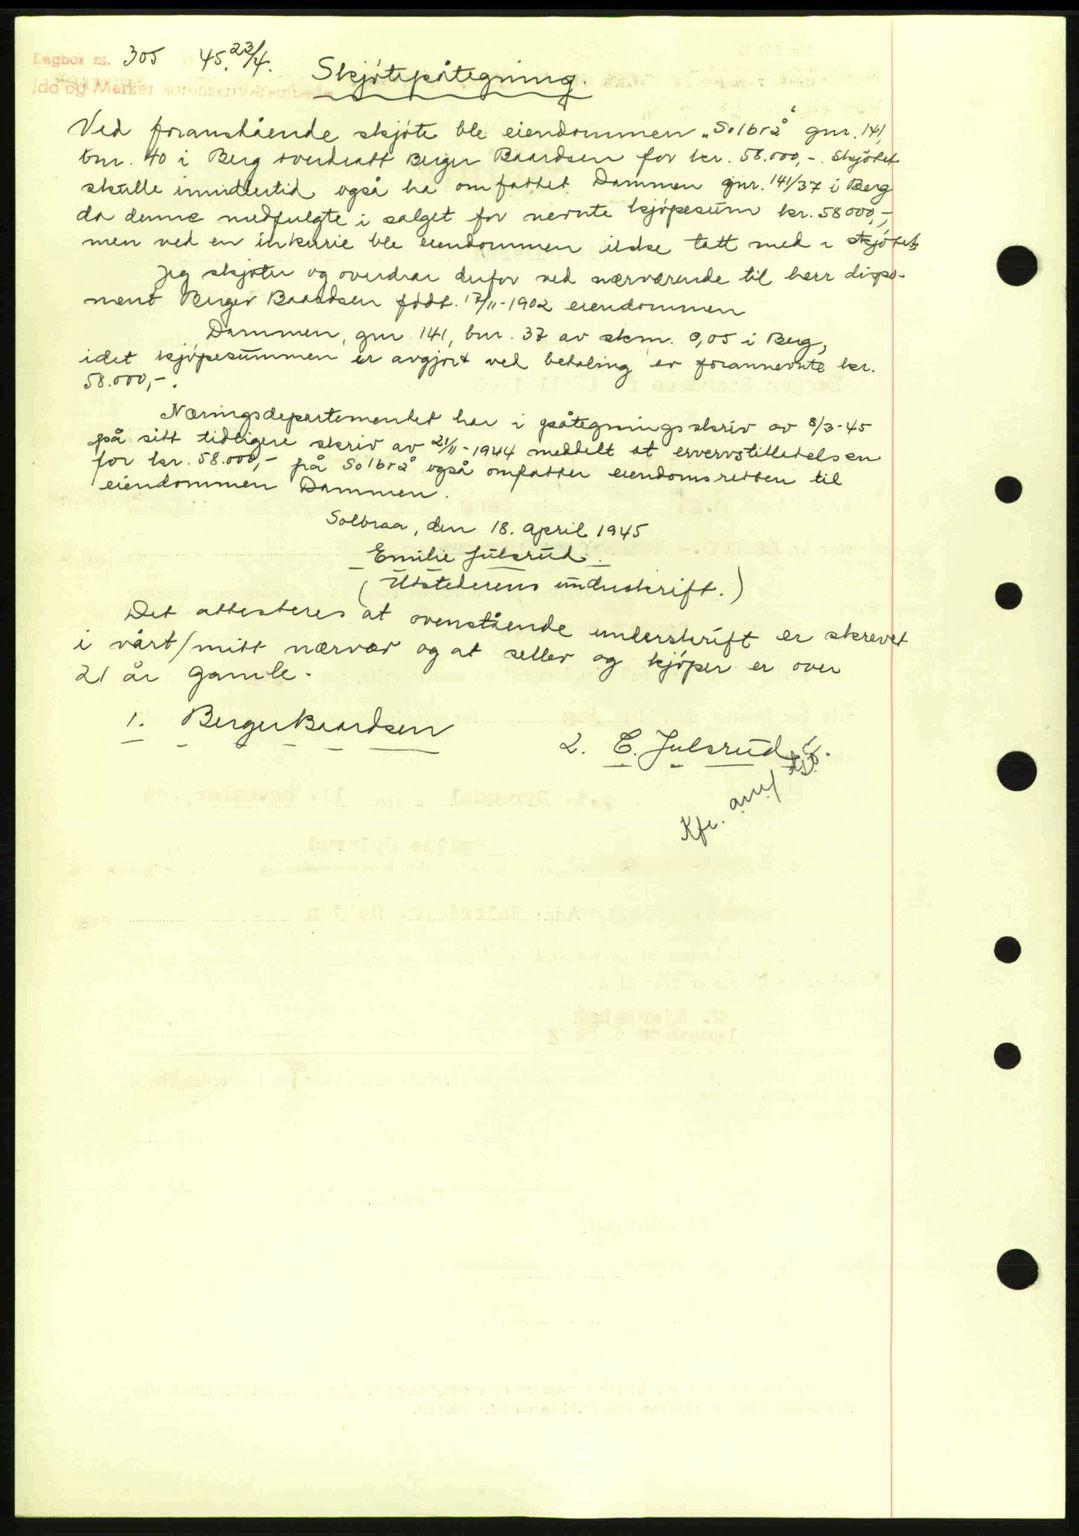 Dagbok nr. 305 45. 23/4.
Idd og Marker sorenskriverembede
Skjøtepåtegning.
Ved foranstående skjøte ble eiendommen „Solbrå" gnr. 141,
bnr. 40 i Berg overdratt Berger Baardsen for kr. 58.000,-. Skjøtet
skulle imidlertid også ha omfattet Dammen gnr. 141/37 i Berg
da denne medfulgte i salget for nevnte kjøpesum kr. 58000,-,
men ved en inkurie ble eiendommen ikke tatt med i skjøtet.
Jeg skjøter og overdrar derfor ved nærværende til herr dispo-
nent Berger Baardsen født. 17/11-1902 eiendommen
Dammen, gnr. 141, bnr. 37 av skm. 0,05 i Berg,
idet kjøpesummen er avgjort ved betaling av forannevnte kr.
58.000,-.
Næringsdepartementet har i påtegningsskriv av 8/3-45
på sitt tidligere skriv av 21/11-1944 meddelt at ervervstillatelsen
for kr. 58.000,- på Solbrå også omfatter eiendomsretten til
eiendommen Dammen.
Solbraa, den 18. april 1945
Emilie Julsrud.
(Utstederens underskrift.)
Det attesteres at ovenstående underskrift er skrevet
i vårt/mitt nærvær og at seller og kjøper er over
21 år gamle.
1. Berger Baardsen
2. E. Julsrud
Kfr.